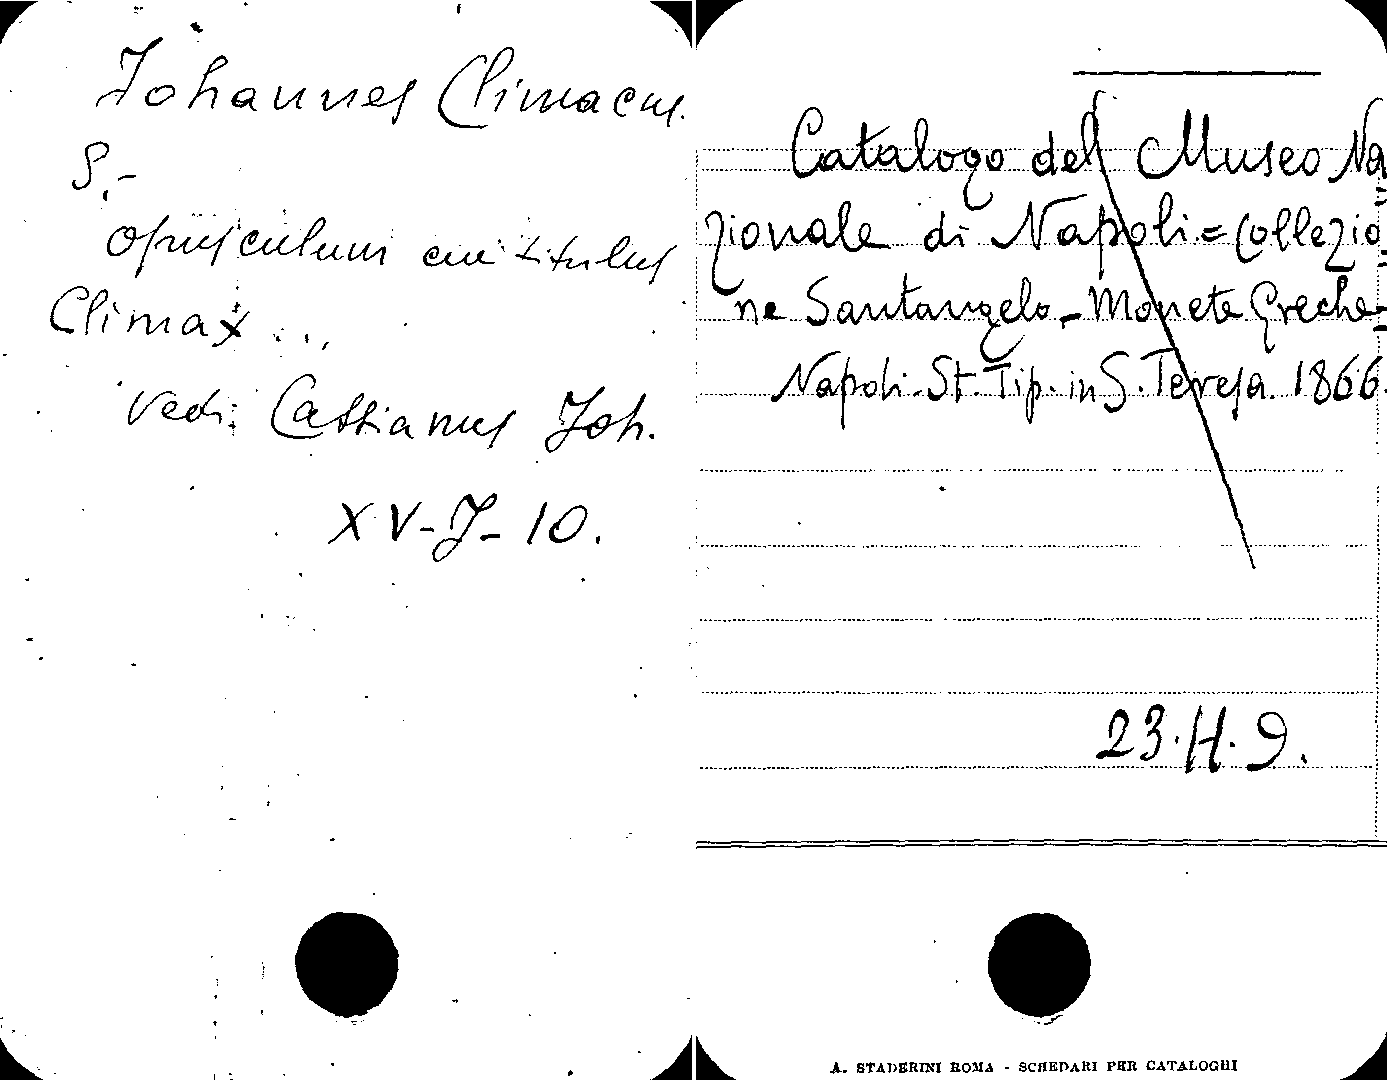 Johannes Climacus.
S.-
opusculum cui titulus
Climax...
Vedi: Cassianus Joh.
XV-J-10.
Catalogo del Museo Na
zionale di Napoli = Collezio
ne Santangelo - Monete Greche -
Napoli. St. Tip. in S. Teresa. 1866.
23.H.9.
A. STADERINI ROMA - SCHEDARI PER CATALOGHI